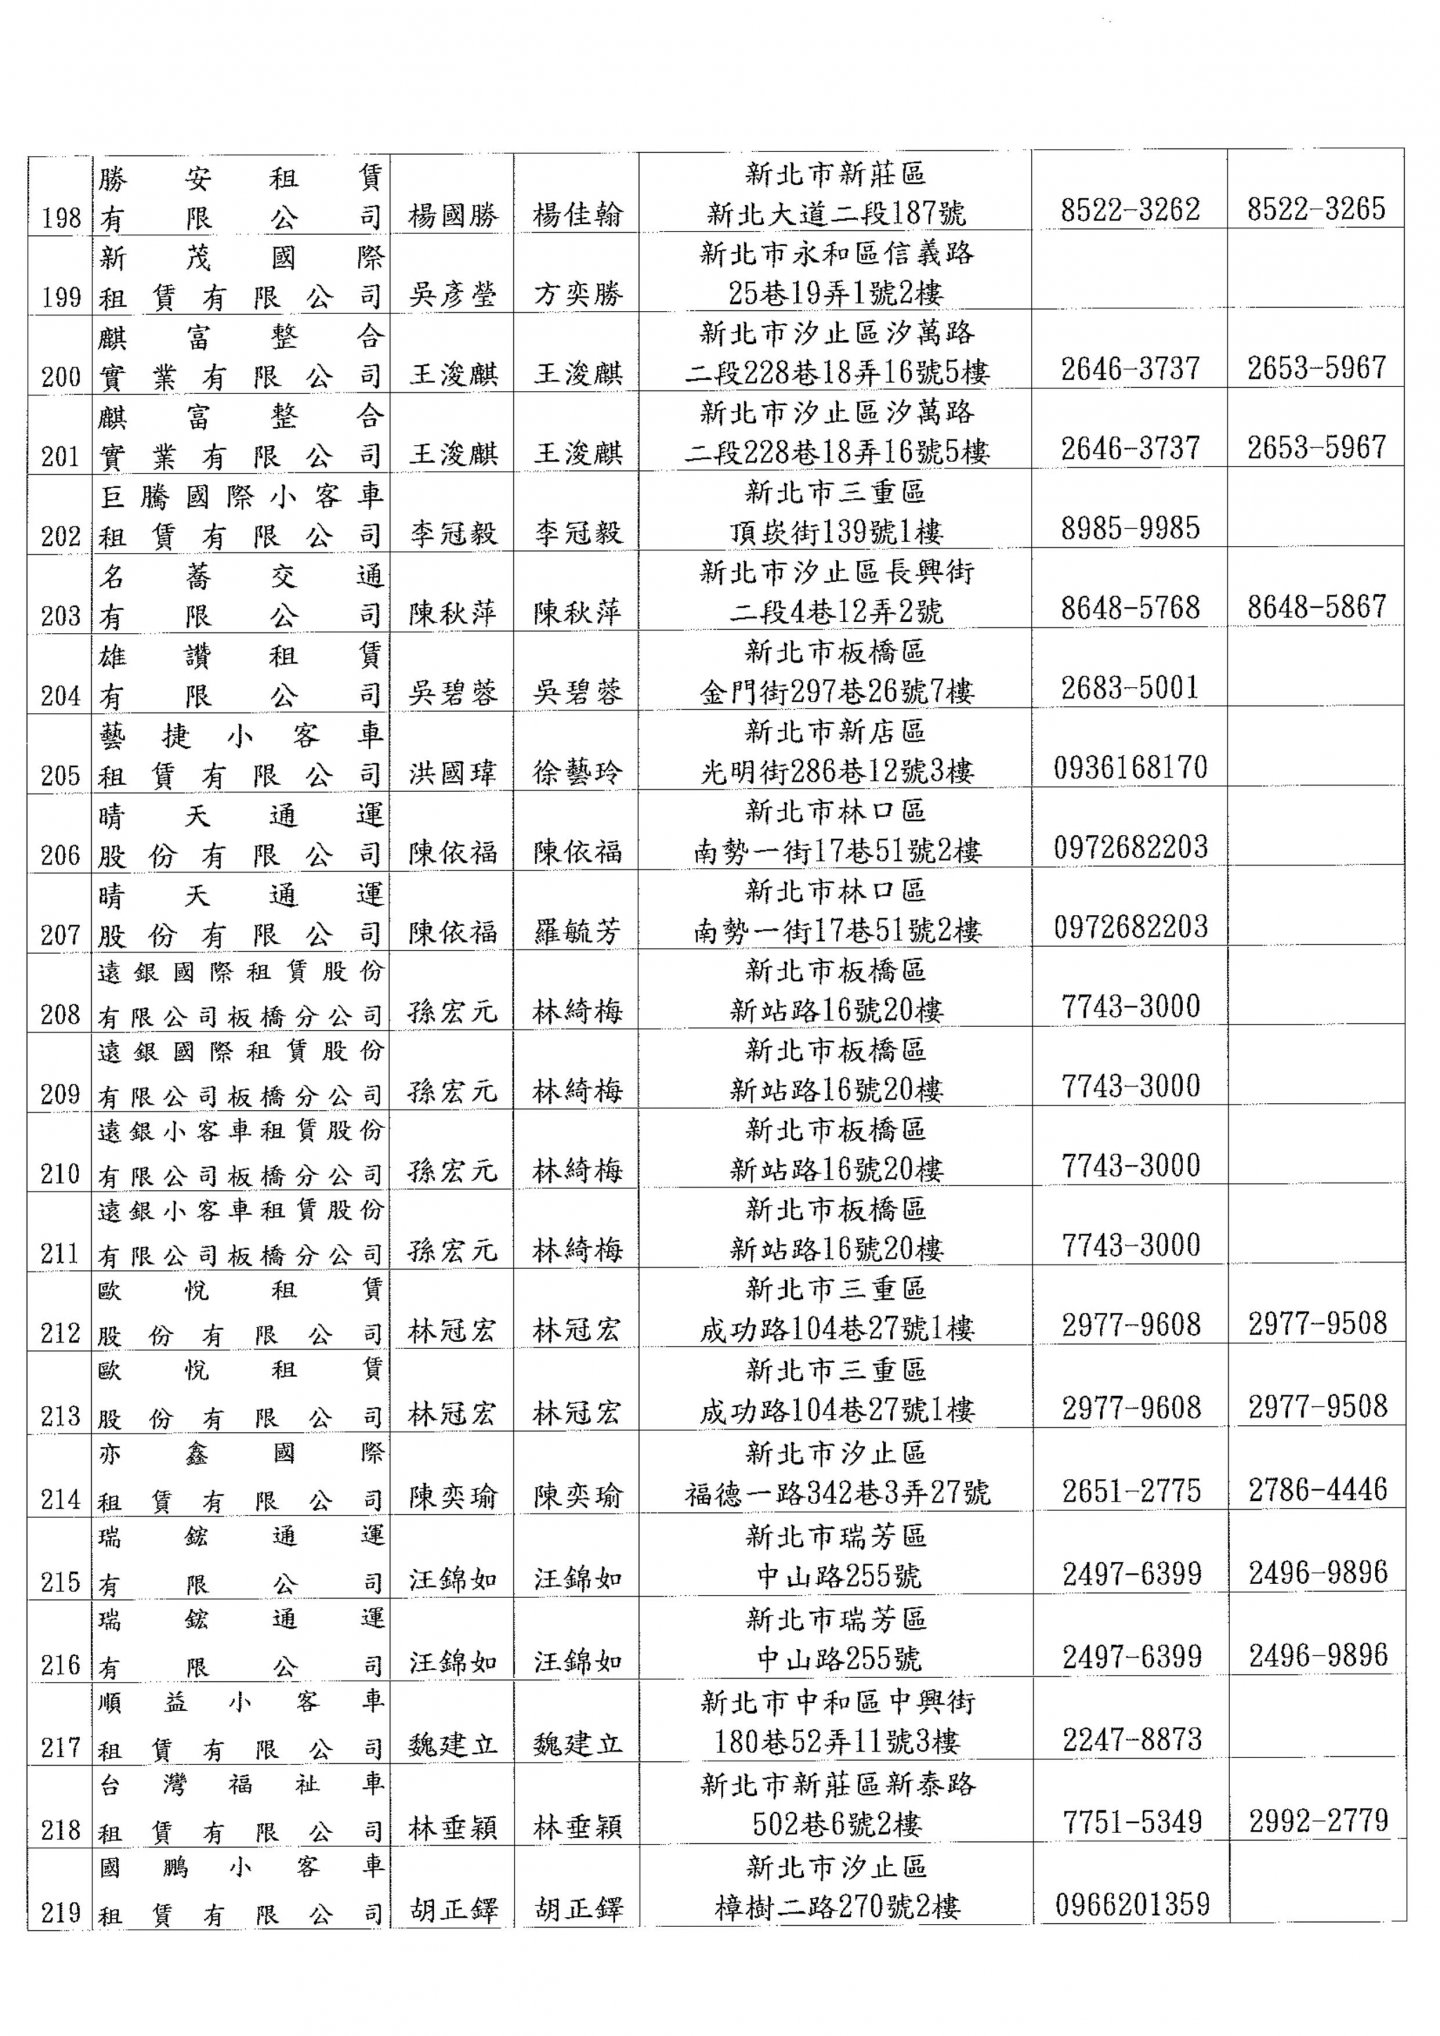 198 勝安租賃有限公司 楊國勝 楊佳翰 新北市新莊區新北大道二段187號 8522-3262 8522-3265
199 新茂國際租賃有限公司 吳彥瑩 方奕勝 新北市永和區信義路25巷19弄1號2樓
200 麒富整合實業有限公司 王浚麒 王浚麒 新北市汐止區汐萬路二段228巷18弄16號5樓 2646-3737 2653-5967
201 麒富整合實業有限公司 王浚麒 王浚麒 新北市汐止區汐萬路二段228巷18弄16號5樓 2646-3737 2653-5967
202 巨騰國際小客車租賃有限公司 李冠毅 李冠毅 新北市三重區頂崁街139號1樓 8985-9985
203 名蕎交通有限公司 陳秋萍 陳秋萍 新北市汐止區長興街二段4巷12弄2號 8648-5768 8648-5867
204 雄讚租賃有限公司 吳碧蓉 吳碧蓉 新北市板橋區金門街297巷26號7樓 2683-5001
205 藝捷小客車租賃有限公司 洪國瑋 徐藝玲 新北市新店區光明街286巷12號3樓 0936168170
206 晴天通運股份有限公司 陳依福 陳依福 新北市林口區南勢一街17巷51號2樓 0972682203
207 晴天通運股份有限公司 陳依福 羅毓芳 新北市林口區南勢一街17巷51號2樓 0972682203
208 遠銀國際租賃股份有限公司板橋分公司 孫宏元 林綺梅 新北市板橋區新站路16號20樓 7743-3000
209 遠銀國際租賃股份有限公司板橋分公司 孫宏元 林綺梅 新北市板橋區新站路16號20樓 7743-3000
210 遠銀小客車租賃股份有限公司板橋分公司 孫宏元 林綺梅 新北市板橋區新站路16號20樓 7743-3000
211 遠銀小客車租賃股份有限公司板橋分公司 孫宏元 林綺梅 新北市板橋區新站路16號20樓 7743-3000
212 歐悅租賃股份有限公司 林冠宏 林冠宏 新北市三重區成功路104巷27號1樓 2977-9608 2977-9508
213 歐悅租賃股份有限公司 林冠宏 林冠宏 新北市三重區成功路104巷27號1樓 2977-9608 2977-9508
214 亦鑫國際租賃有限公司 陳奕瑜 陳奕瑜 新北市汐止區福德一路342巷3弄27號 2651-2775 2786-4446
215 瑞鋐通運有限公司 汪錦如 汪錦如 新北市瑞芳區中山路255號 2497-6399 2496-9896
216 瑞鋐通運有限公司 汪錦如 汪錦如 新北市瑞芳區中山路255號 2497-6399 2496-9896
217 順益小客車租賃有限公司 魏建立 魏建立 新北市中和區中興街180巷52弄11號3樓 2247-8873
218 台灣福祉車租賃有限公司 林垂穎 林垂穎 新北市新莊區新泰路502巷6號2樓 7751-5349 2992-2779
219 國鵬小客車租賃有限公司 胡正鐸 胡正鐸 新北市汐止區樟樹二路270號2樓 0966201359